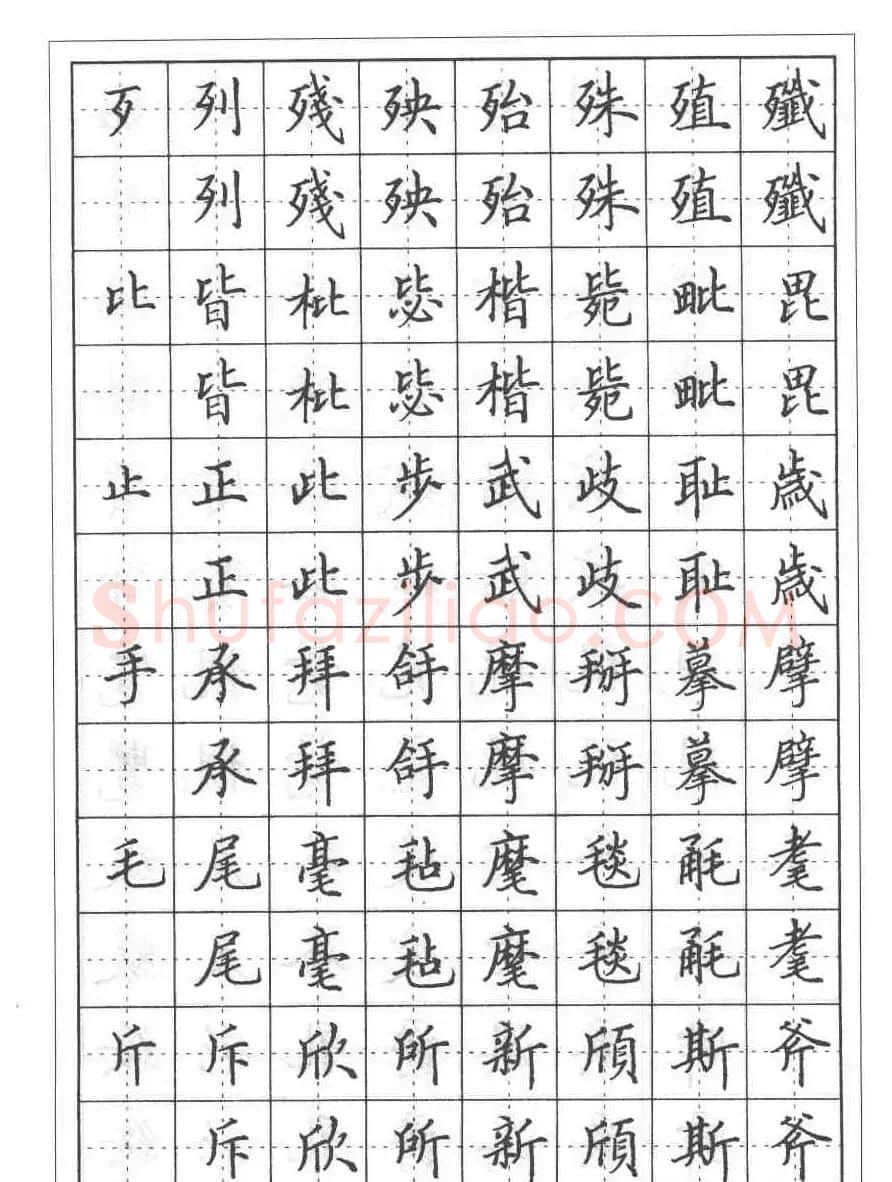 歹 列 殘 殃 殆 殊 殖 殲
列 殘 殃 殆 殊 殖 殲
比 皆 枇 毖 楷 毗 毘
皆 枇 毖 楷 毗 毘
止 正 此 步 武 歧 耻 歲
正 此 步 武 歧 耻 歲
Shufaziliao.COM
手 承 拜 摩 掰 摹 擘
承 拜 摩 掰 摹 擘
毛 尾 毫 毡 麾 毯 耄
尾 毫 毡 麾 毯 耄
斤 斥 欣 所 新 頎 斯 斧
斥 欣 所 新 頎 斯 斧